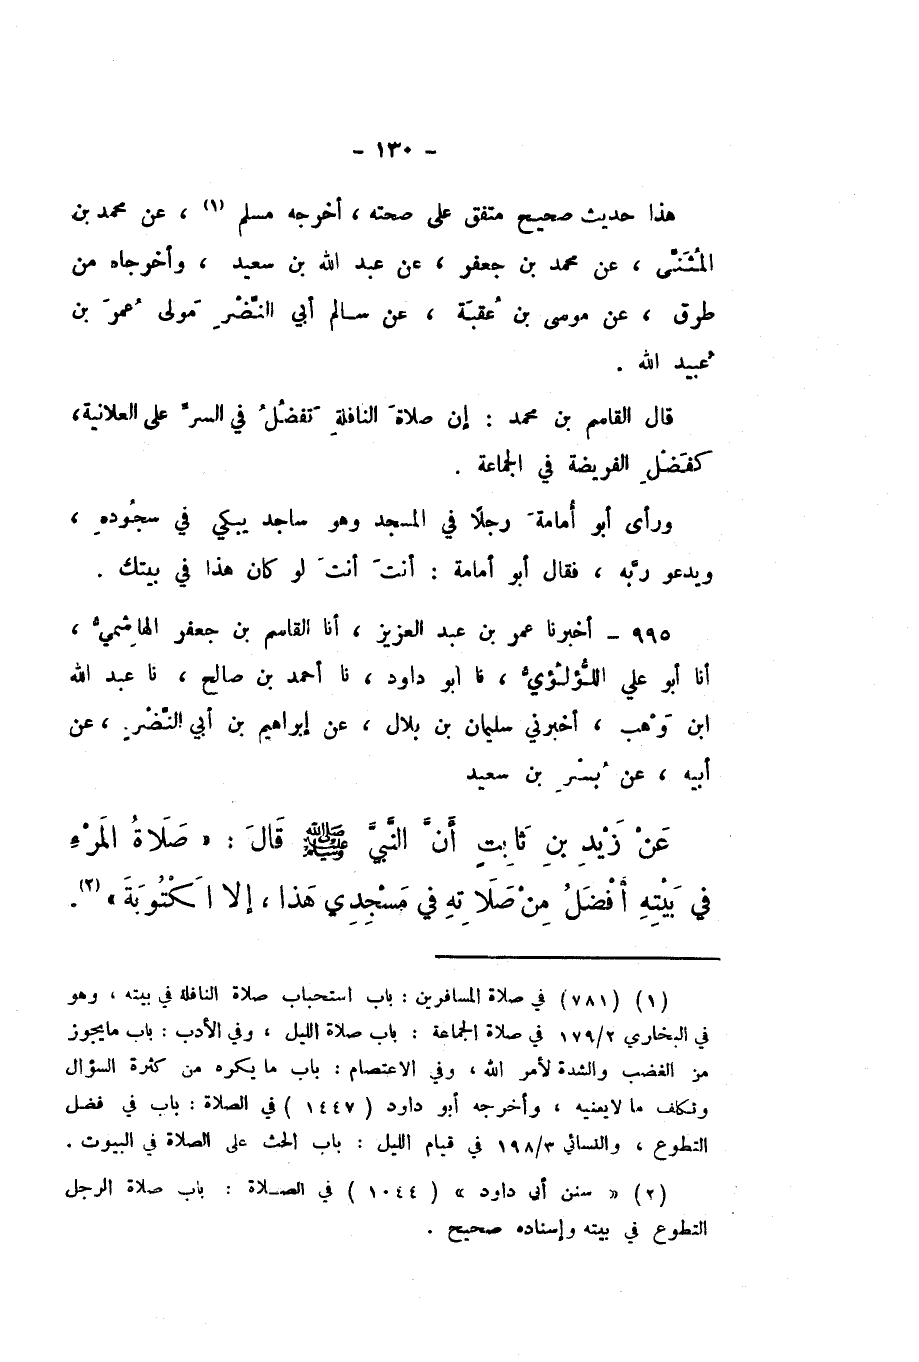 - ١٣٠ -
هذا حديث صحيح متفق على صحته ، أخرجه مسلم (١) ، عن محمد بن
المُثَنَّى ، عن محمد بن جعفر ، عن عبد الله بن سعيد ، وأخرجاه من
طرق ، عن موسى بن عُقبَة ، عن سالم أبي النَّضْرِ مَولى عُمَرَ بن
عُبيد الله .
قال القاسم بن محمد : إن صلاةَ النافلةِ تَفضُلُ في السرِّ على العلانية،
كفَضْلِ الفريضة في الجماعة .
ورأى أبو أُمامةَ رجلًا في المسجد وهو ساجد يبكي في سجُودهِ ،
ويدعو ربَّه ، فقال أبو أمامة : أنتَ أنتَ لو كان هذا في بيتك .
٩٩٥ - أخبرنا عمر بن عبد العزيز ، أنا القاسم بن جعفر الهاشِميُّ ،
أنا أبو علي اللُّؤلُؤيُّ ، نا أبو داود ، نا أحمد بن صالح ، نا عبد الله
ابن وَهْب ، أخبرني سليمان بن بلال ، عن إبراهيم بن أبي النَّضْرِ ، عن
أبيه ، عن بُسْرِ بن سعيد
عَنْ زَيْدِ بنِ ثَابِتٍ أَنَّ النَّبِيَّ ﷺ قَالَ : « صَلَاةُ المَرْءِ
في بَيْتِهِ أَفْضَلُ مِنْ صَلَاتِهِ في مَسْجِدِي هَذا ، إلا المَكْتُوبَةَ » (٢).
(١) (٧٨١) في صلاة المسافرين : باب استحباب صلاة النافلة في بيته ، وهو
في البخاري ١٧٩/٢ في صلاة الجماعة : باب صلاة الليل ، وفي الأدب : باب مايجوز
من الغضب والشدة لأمر الله ، وفي الاعتصام : باب ما يكره من كثرة السؤال
وتكلف ما لايعنيه ، وأخرجه أبو داود ( ١٤٤٧ ) في الصلاة : باب في فضل
التطوع ، والنسائي ١٩٨/٣ في قيام الليل : باب الحث على الصلاة في البيوت .
(٢) « سنن أبي داود » ( ١٠٤٤ ) في الصلاة : باب صلاة الرجل
التطوع في بيته وإسناده صحيح .